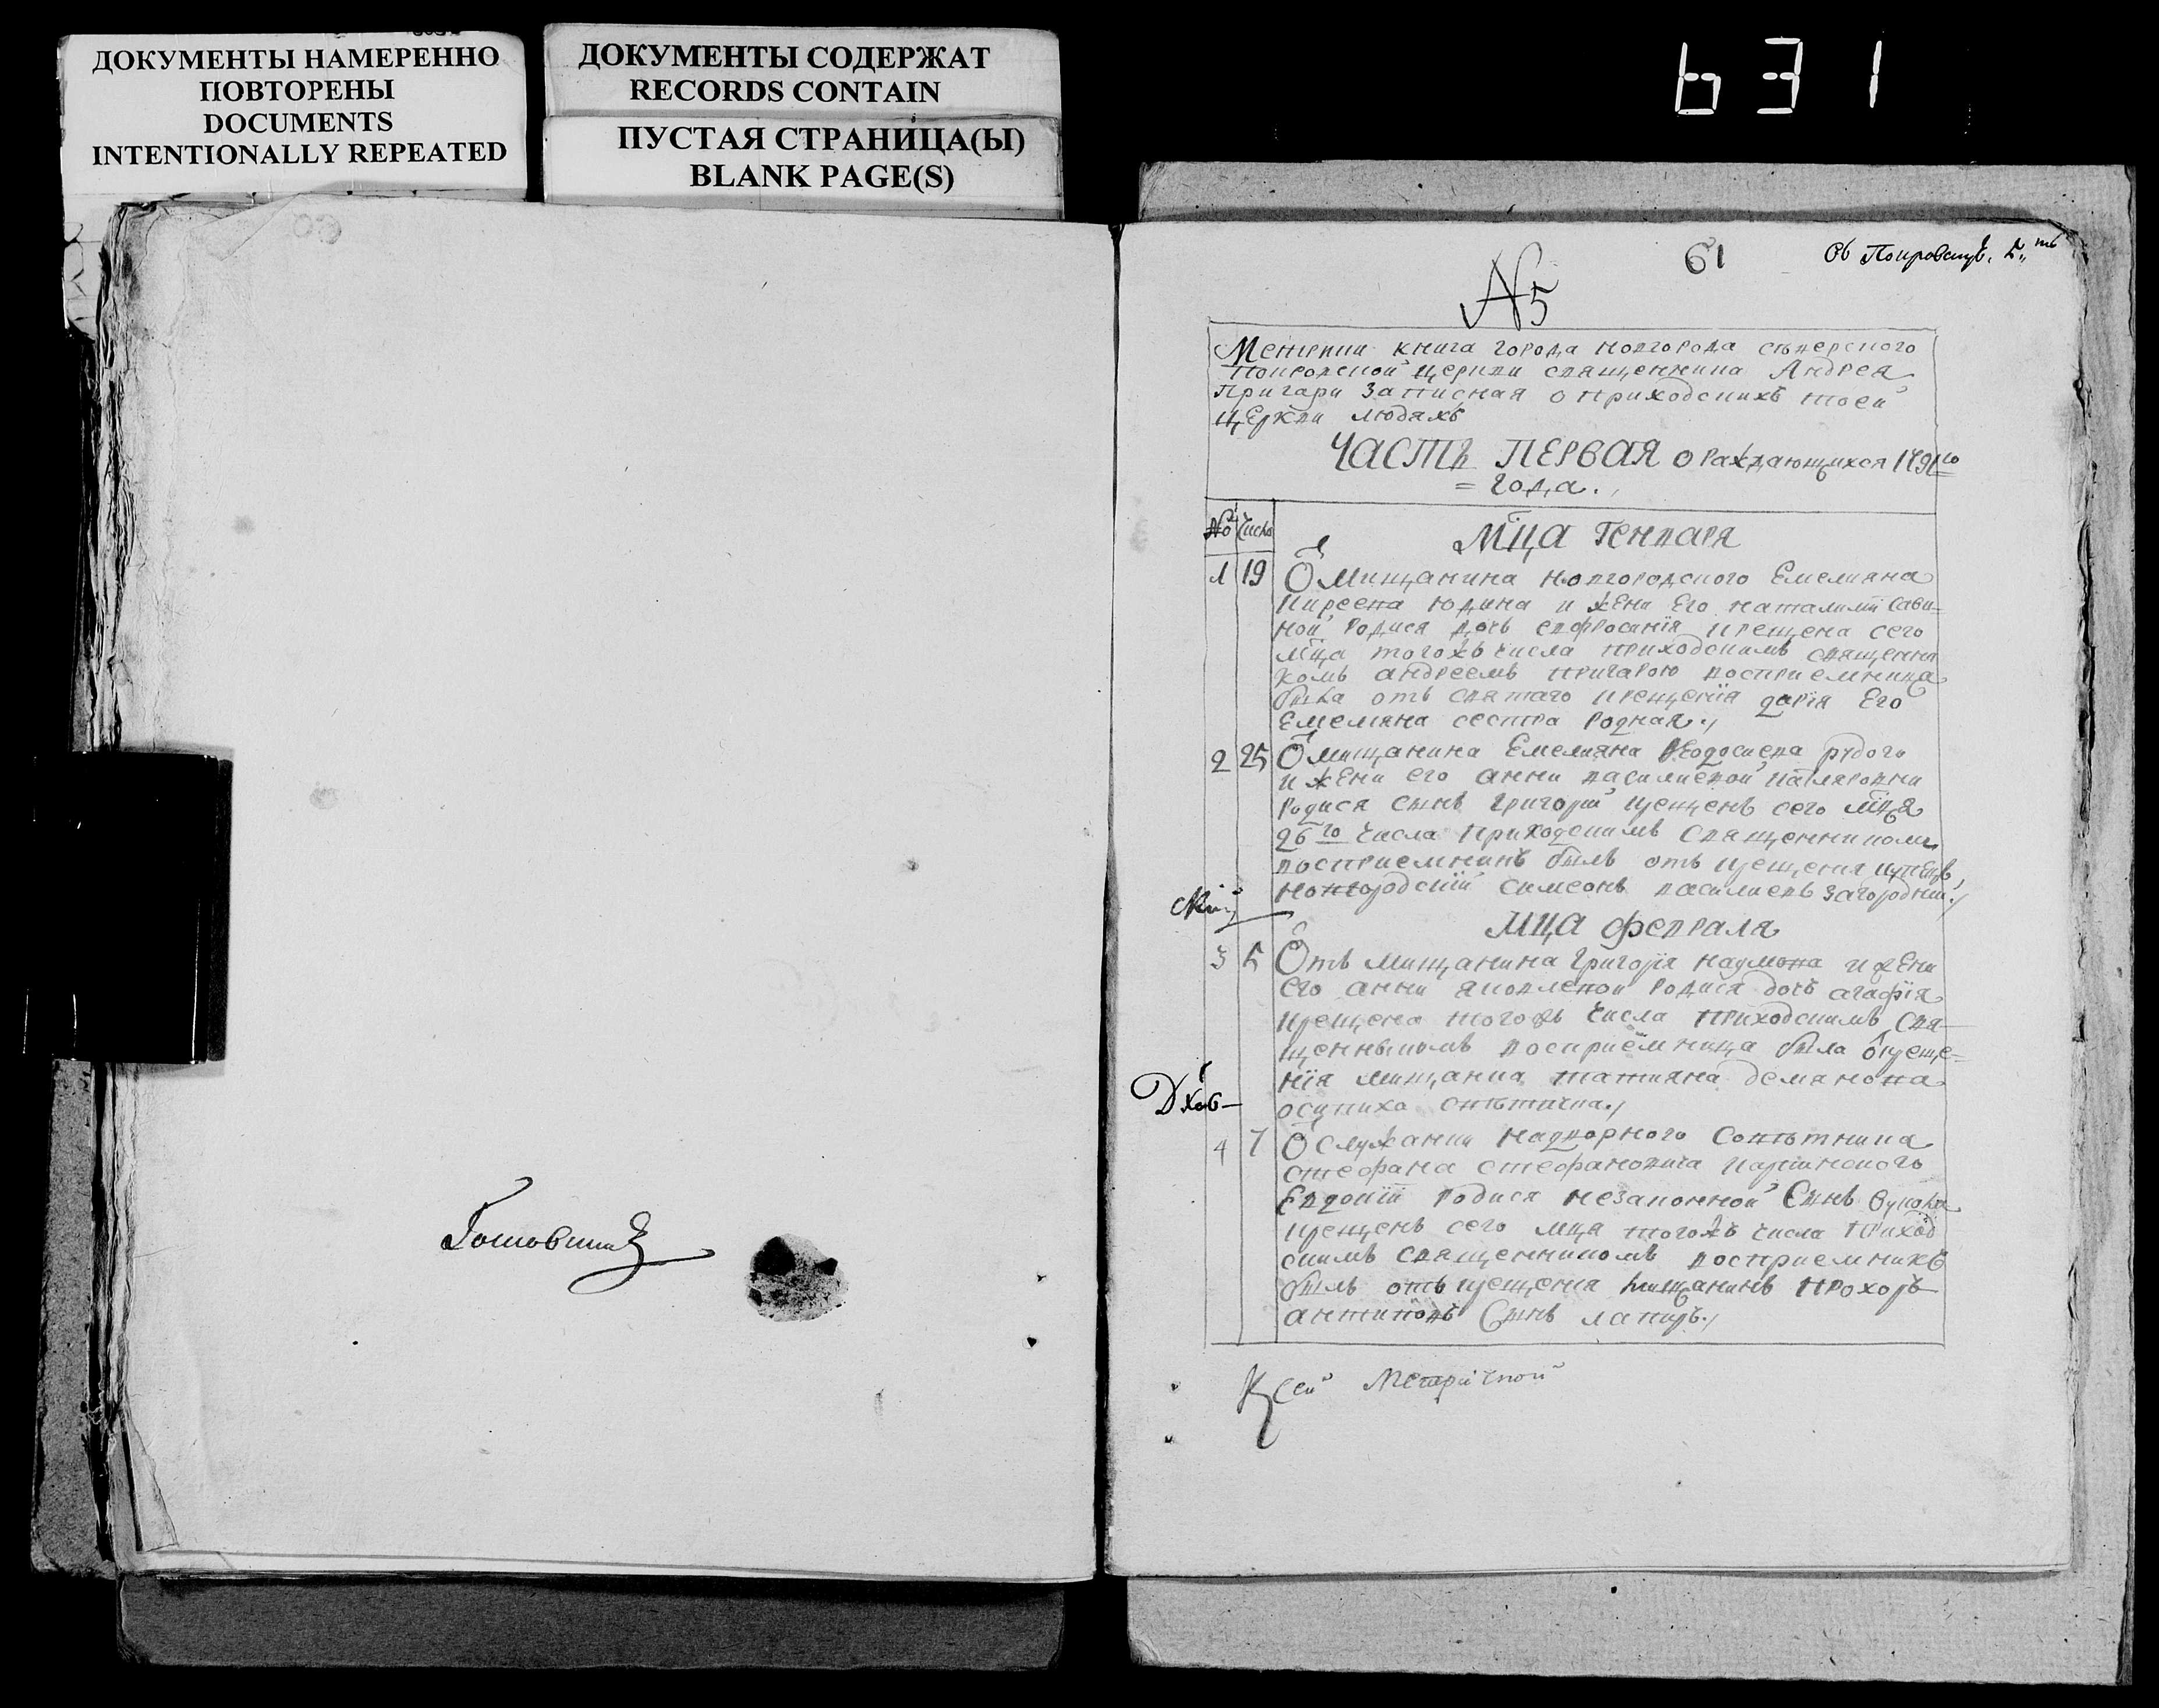 ДОКУМЕНТЫ НАМЕРЕННО
ПОВТОРЕНЫ
DOCUMENTS
INTENTIONALLY REPEATED
ДОКУМЕНТЫ СОДЕРЖАТ
RECORDS CONTAIN
ПУСТАЯ СТРАНИЦА(Ы)
BLANK PAGE(S)
631
61
№ 5
книга города новгорода сѣверского
церкви священника Андрея
Пригари записная о приходскихъ тоей
церкви людяхъ
ЧАСТЬ ПЕРВАЯ о раждающихся 1791го
года.
№ Число
Мца Генваря
1 19 Ѿ Мищанина новгородского Емелияна
Кирсева юдина и жени Его наталиии Сави=
ной родися дочь евфросинїя крещена сего
мца тогожъ числа приходскимъ священни
комъ андреемъ пригарою восприемница
была отъ святаго крещенїя дарїя Его
Емеляна сестра родная.
2 25 Ѿ мищанина Емелияна Ѳеодосиева рудого
и жени его анни василиевой
родися сынъ григорий крещенъ сего мця
26го числа приходскимъ священникомъ
восприемникъ былъ отъ крещения купецъ
новгородский симеонъ василиевъ загородний.
Мца февраля
3 5 Отъ мищанина григорїя наумова и жени
его анни яковлевой родися дочь агафїя
крещена тогожъ числа приходскимъ свя-
щенникомъ восприемница была ѿ креще=
нїя мищанка татияна демянова
4 7 Ѿ служанки надворного совѣтника
стефана стефановича
Евдокїи родися незаконной Синъ
крещенъ сего мця тогожъ числа приход
скимъ священникомъ восприемникъ
былъ отъ крещения мищанинъ прохоръ
антиповъ Сынъ
Дхов-
К сей Метричной